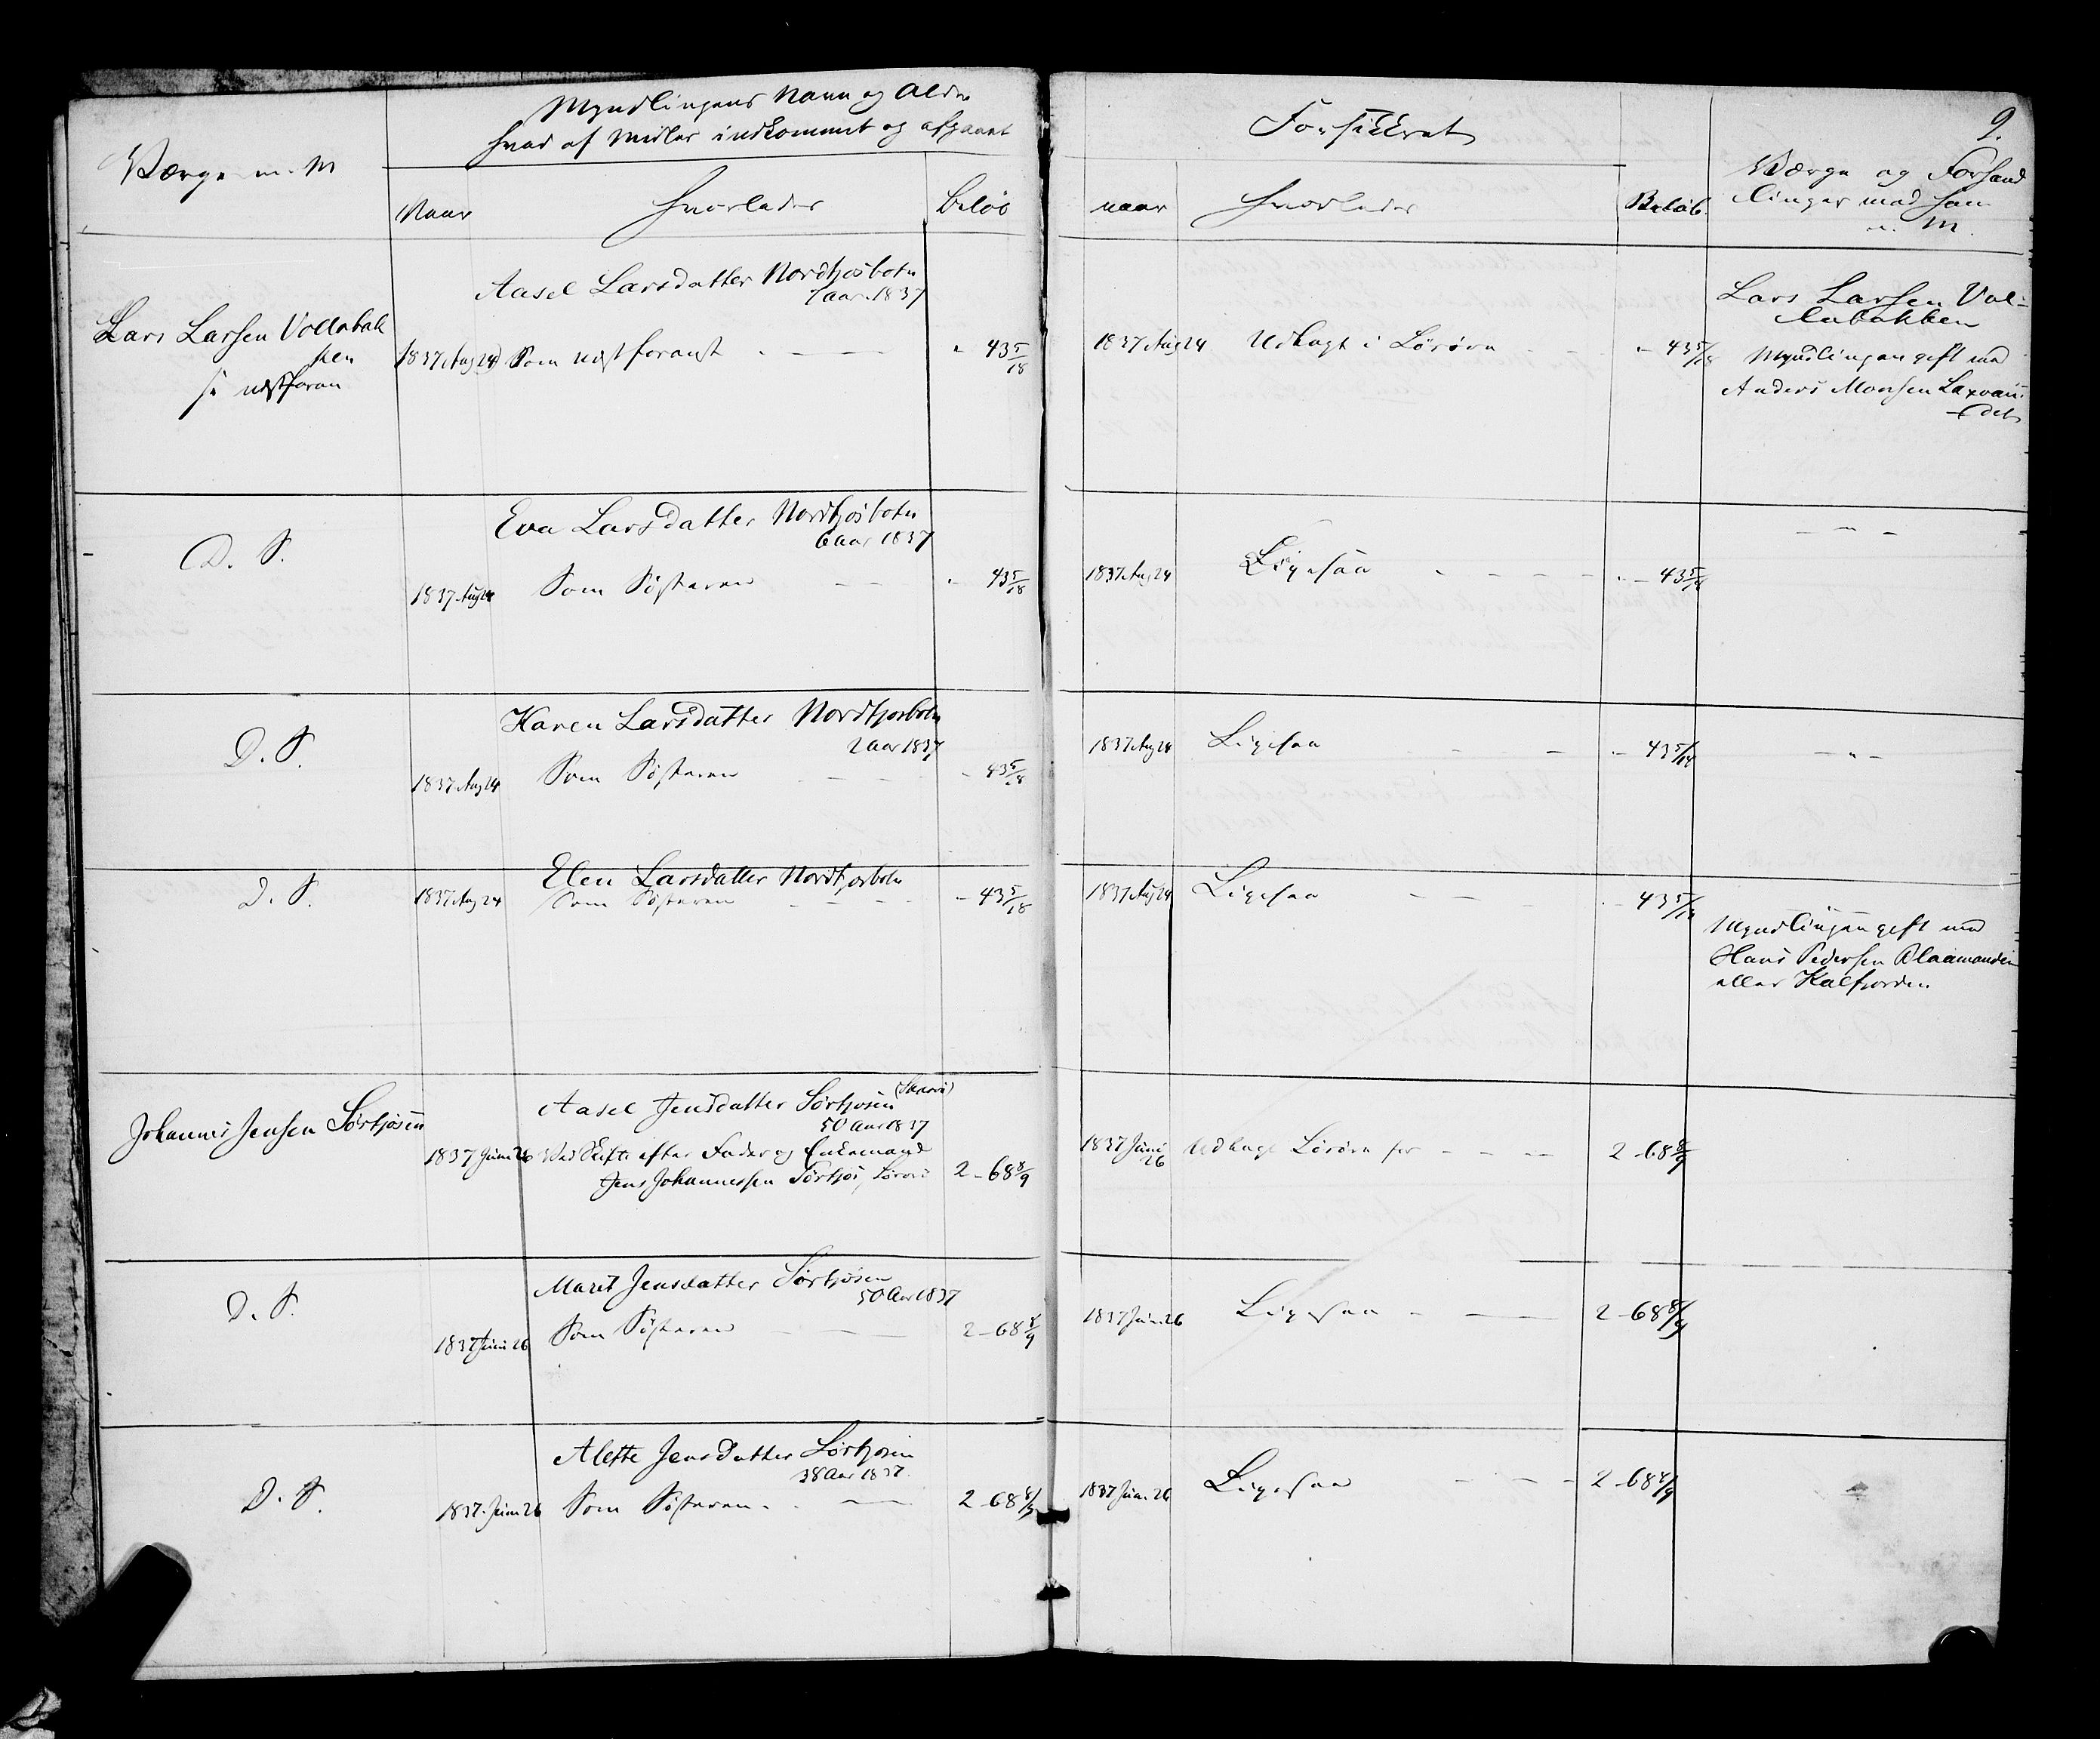 9.
Værge m. M
Myndlingens Navn og Alder
hvad af Midler indkommet og afgaaet
Naar
Hvorledes
Beløb
Forsikkret
naar
Hvorledes
Beløb
Værge og Forhand
linger med ham
m. M.
Lars Larsen Vollebak
ken
se næstforan
Aasel Larsdatter Nordkjosbotn
7 aar 1837
1837 Aug 24 Som næst foran - - 43 5/18
1837 Aug 24 Udlagt i Løsøre - - 43 5/18
Lars Larsen Vol-
lebakken
Myndlingen gift med
Anders Monsen Laxvan
det
D. S.
Eva Larsdatter Nordkjosbotn
6 aar 1837
1837 Aug 24 Som Søsteren - - 43 5/18
1837 Aug 24 Ligesaa - - - - 43 5/18
- " -
D. S.
Karen Larsdatter Nordkjosbotn
2 aar 1837
1837 Aug 24 Som Søsteren - - - 43 5/18
1837 Aug 24 Ligesaa - - - - 43 5/18
- " -
D. S.
Elen Larsdatter Nordkjosbotn
1837 Aug 24 Som Søsteren - - - 43 5/18
1837 Aug 24 Ligesaa - - - - 43 5/18
Myndlingen gift med
Hans Pedersen
eller Kalfjorden
Johannes Jensen Sørkjosen
Aasel Jensdatter Sørkjosen
50 Aar 1837
1837 Juni 26 Ved Skifte efter Fader og Enkemand
Jens Johannessen Sørkjos 2 - 68 8/9
1837 Juni
26 Udlagt Løsøre for - - - 2 - 68 8/9
D. S.
Marit Jensdatter Sørkjosen
50 Aar 1837
1837 Juni 26 Som Søsteren - - 2 - 68 8/9
1837 Juni 26 Ligesaa - - 2 - 68 8/9
D. S.
Alette Jensdatter Sørkjosen
38 Aar 1837
1837 Juni 26 Som Søsteren - - 2 - 68 8/9
1837 Juni 26 Ligesaa - - - 2 - 68 8/9